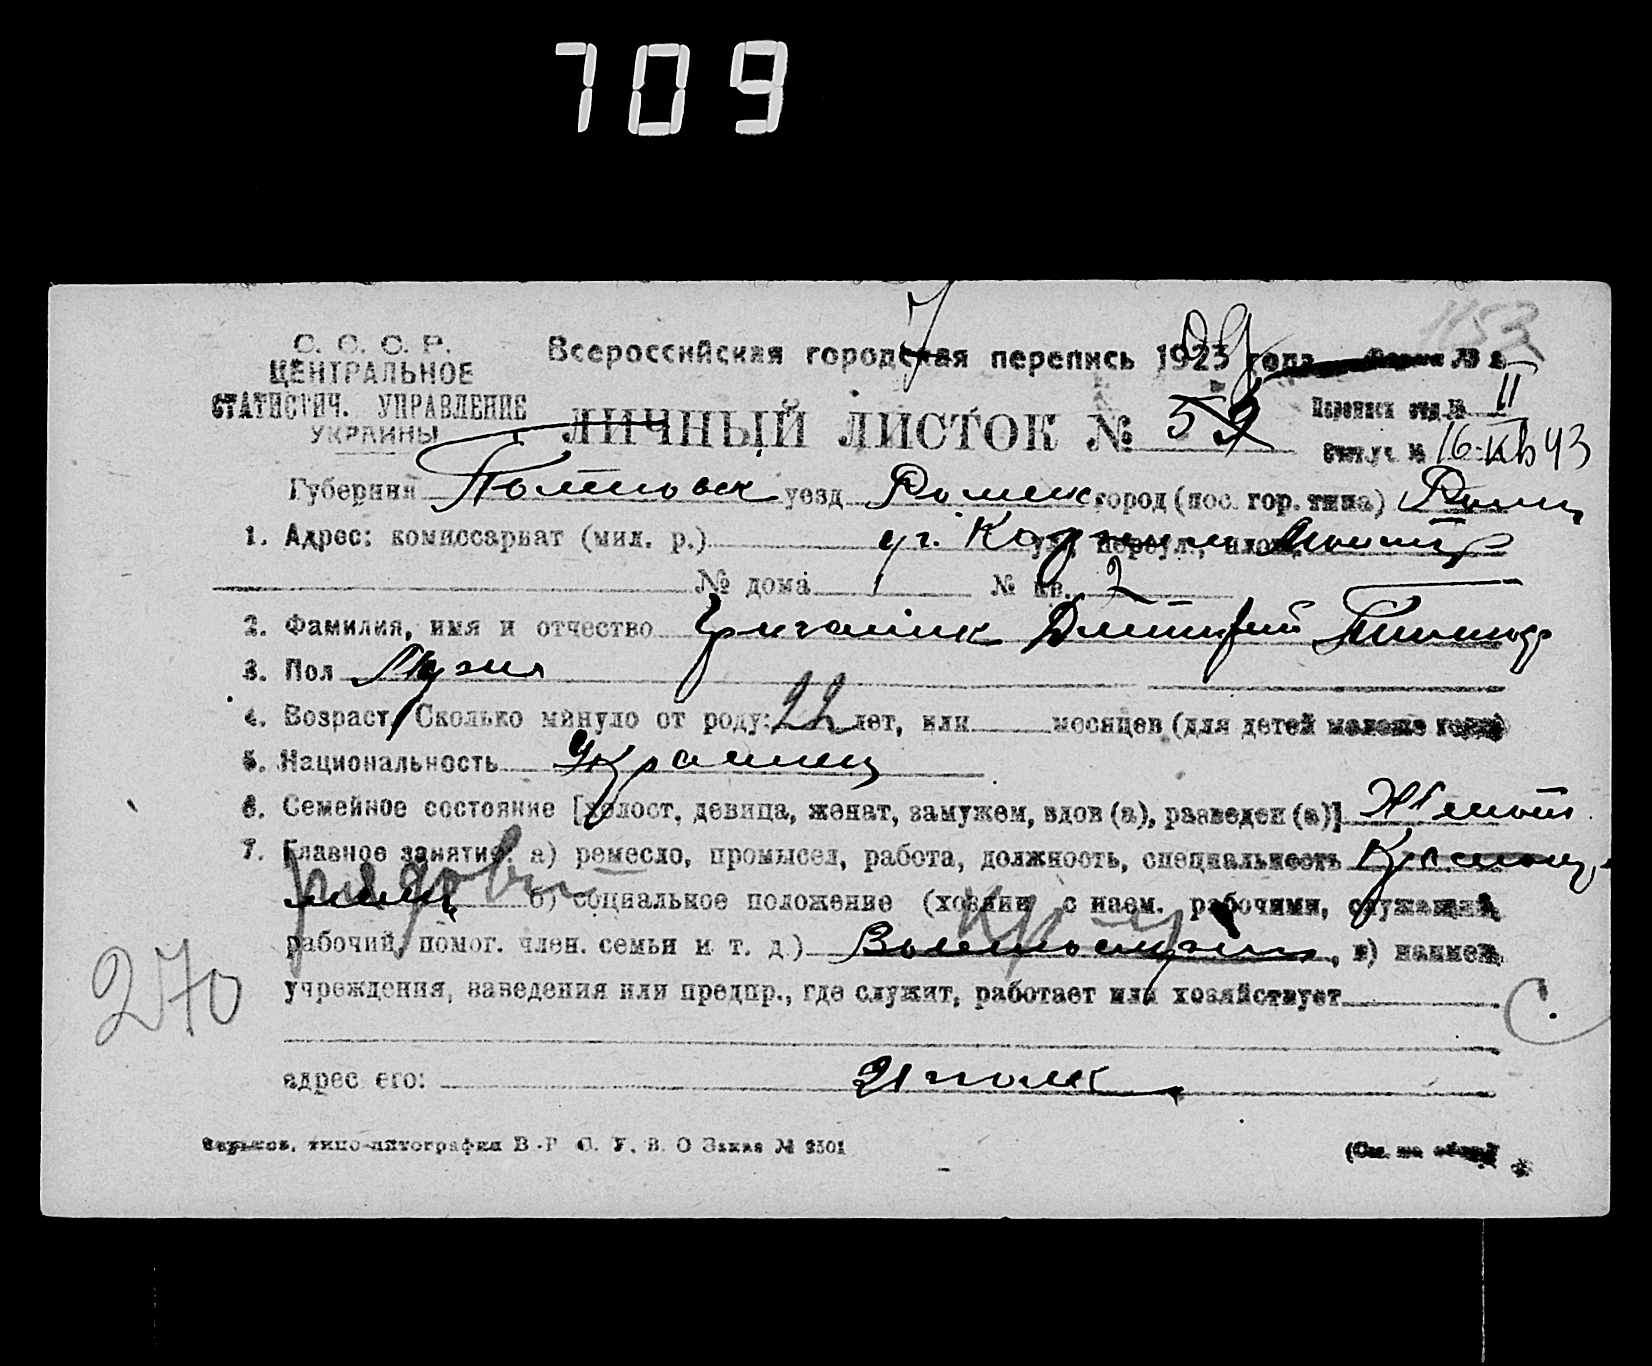 709
1153
С. С. С. Р.
ЦЕНТРАЛЬНОЕ
СТАТИСТИЧ. УПРАВЛЕНИЕ
УКРАИНЫ
Всероссийская городская перепись 1923 года Форма № 2
ЛИЧНЫЙ ЛИСТОК №
Переписн отд. № II
Счетн.уч. № 16 кв 43
Губерния Полтовск уезд Ромен город (пос. гор. типа) Ромны
1. Адрес: комиссарват (мил. р.) уг. ул., переул., площ.
№ дома 1 № кв. 2
2. Фамилия, имя и отчество Дмитрий
3. Пол Мужск
4. Возраст. Сколько минуло от роду: 22 лет, или месяцев (для детей моложе года)
5. Национальность Украинец
6. Семейное состояние [холост, девица, женат, замужем, вдов (а), разведен (а)] Женат
7. Главное занятие: а) ремесло, промысел, работа, должность, специальность Красноар-
меец рядовой б) социальное положение (хозяин с наем. рабочими, служащий,
рабочий, помог. член. семьи и т. д.) Военнослуж , в) наимен.
270
учреждения, заведения или предпр., где служит, работает или хозяйствует
С.
адрес его: 21 полк
Харьков, типо-литография В.-У. С. У. В. О Заказ № 2501
(См. на обор.)